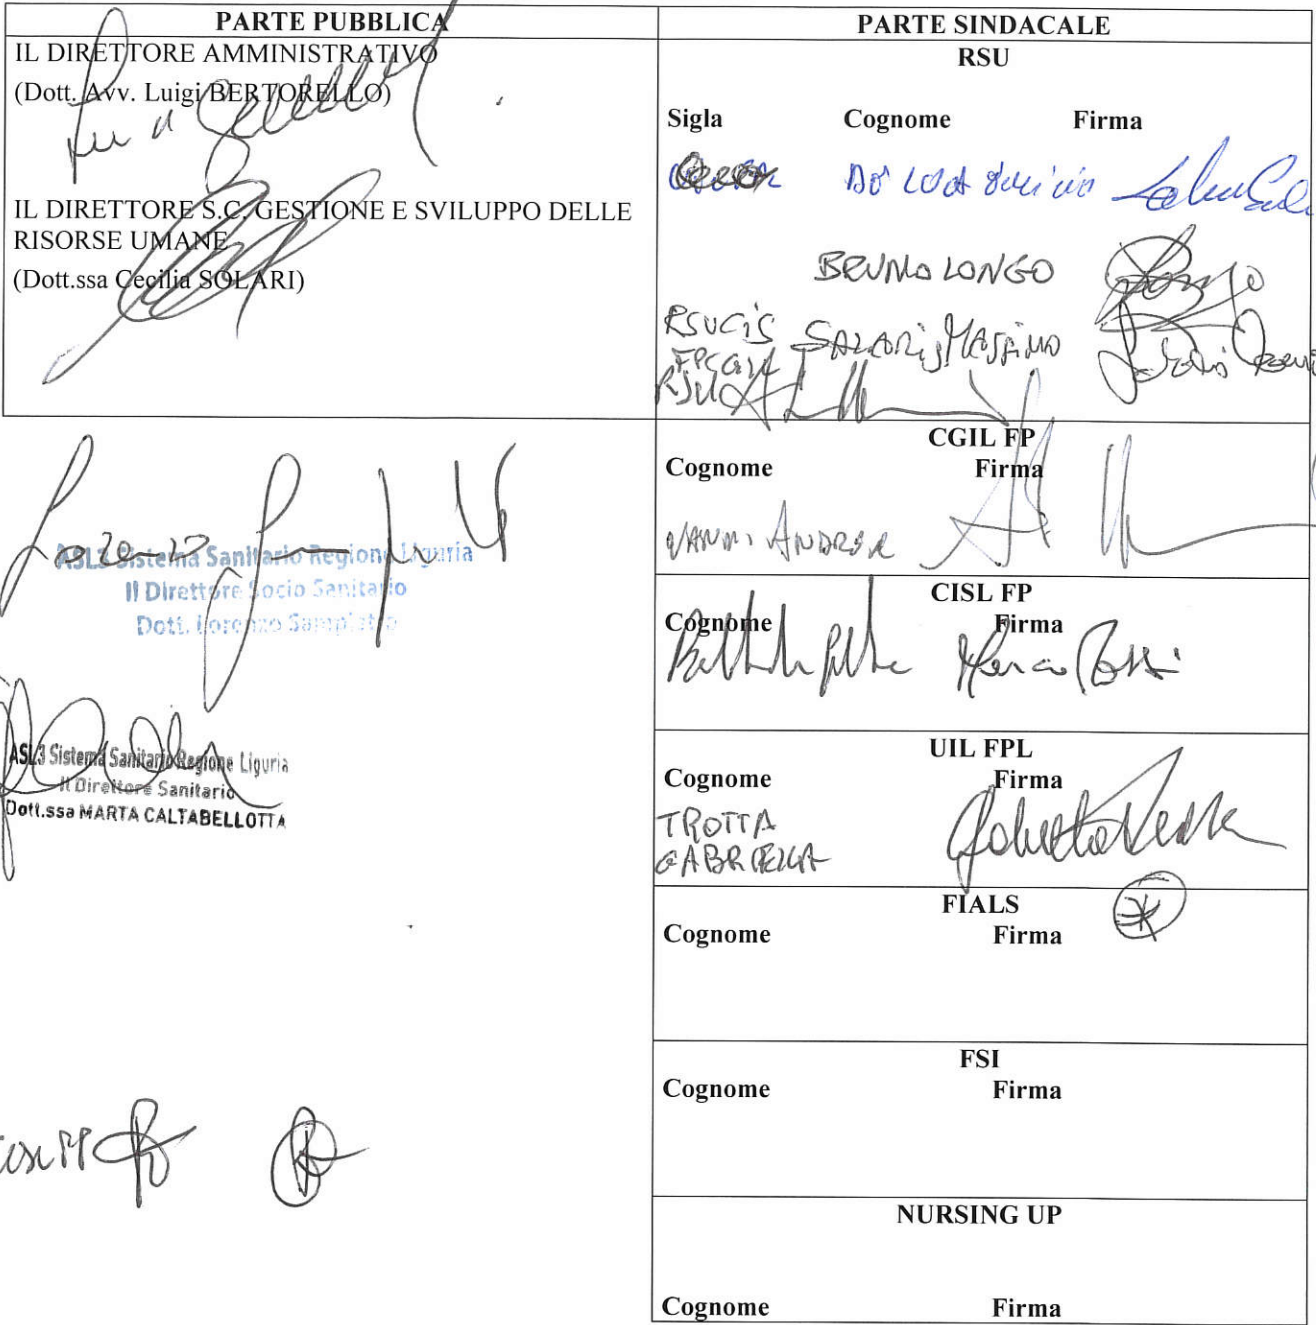 PARTE PUBBLICA
IL DIRETTORE AMMINISTRATIVO
(Dott. Avv. Luigi BERTORELLO)
IL DIRETTORE S.C. GESTIONE E SVILUPPO DELLE
RISORSE UMANE
(Dott.ssa Cecilia SOLARI)
ASL3 Sistema Sanitario Regione Liguria
Il Direttore Socio Sanitario
Dott. Lorenzo Sampietro
ASL3 Sistema Sanitario Regione Liguria
Il Direttore Sanitario
Dott.ssa MARTA CALTABELLOTTA
PARTE SINDACALE
RSU
Sigla Cognome Firma
BRUNO LONGO
MASSIMO
RSU
CGIL FP
Cognome Firma
VANNI ANDREA
CISL FP
Cognome Firma
Marco Rossi
UIL FPL
Cognome Firma
TROTTA
GABRIELLA
FIALS
Cognome Firma
FSI
Cognome Firma
NURSING UP
Cognome Firma